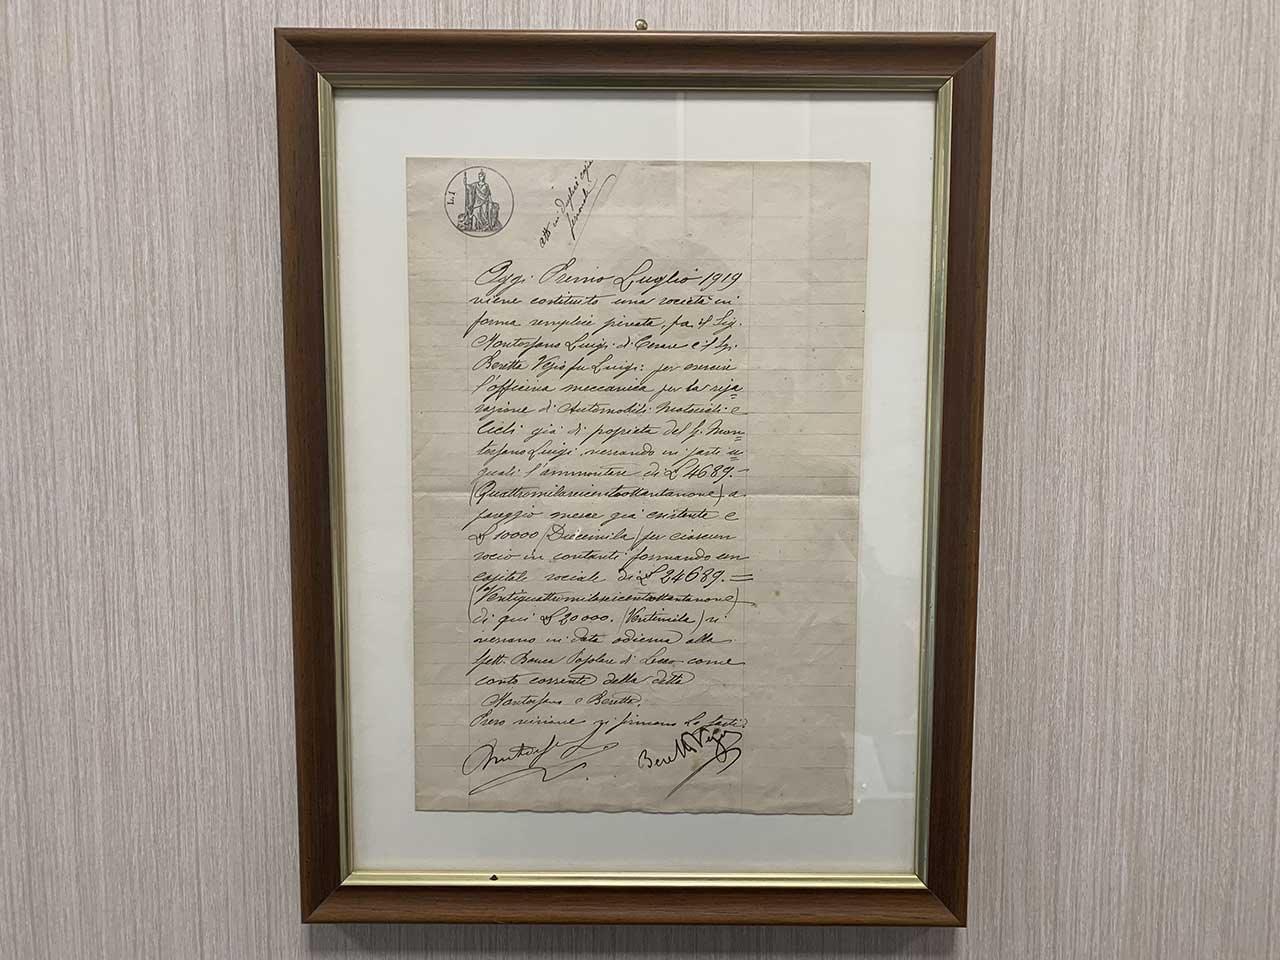 L.1
atto in duplice copia
personale
Oggi Primo Luglio 1919
viene costituito una società in
forma semplice privata, fra il Sig.
Montorfano Luigi di Cesare e il Sig.
Beretta Vezio fu Luigi: per esercire
l'officina meccanica per la ripa=
razione di Automobili Motocicli e
Cicli già di propietà del S. Mon=
torfano Luigi, versando in parti u=
guali l'ammontare di £ 4689.-
(Quattromilaseicentoottantanove) a
pareggio merce già esistente e
£ 10000 (Diecimila) per ciascun
socio in contanti formando un
capitale sociale di £ 24689.=
(Ventiquattromilaseicentoottantanove)
di qui £ 20000. (Ventimila) si
versano in data odierna alla
spett. Banca Popolare di Lecco come
conto corrente della ditta
Montorfano e Beretta.
Preso visione si firmano le parti.
Beretta Vezio